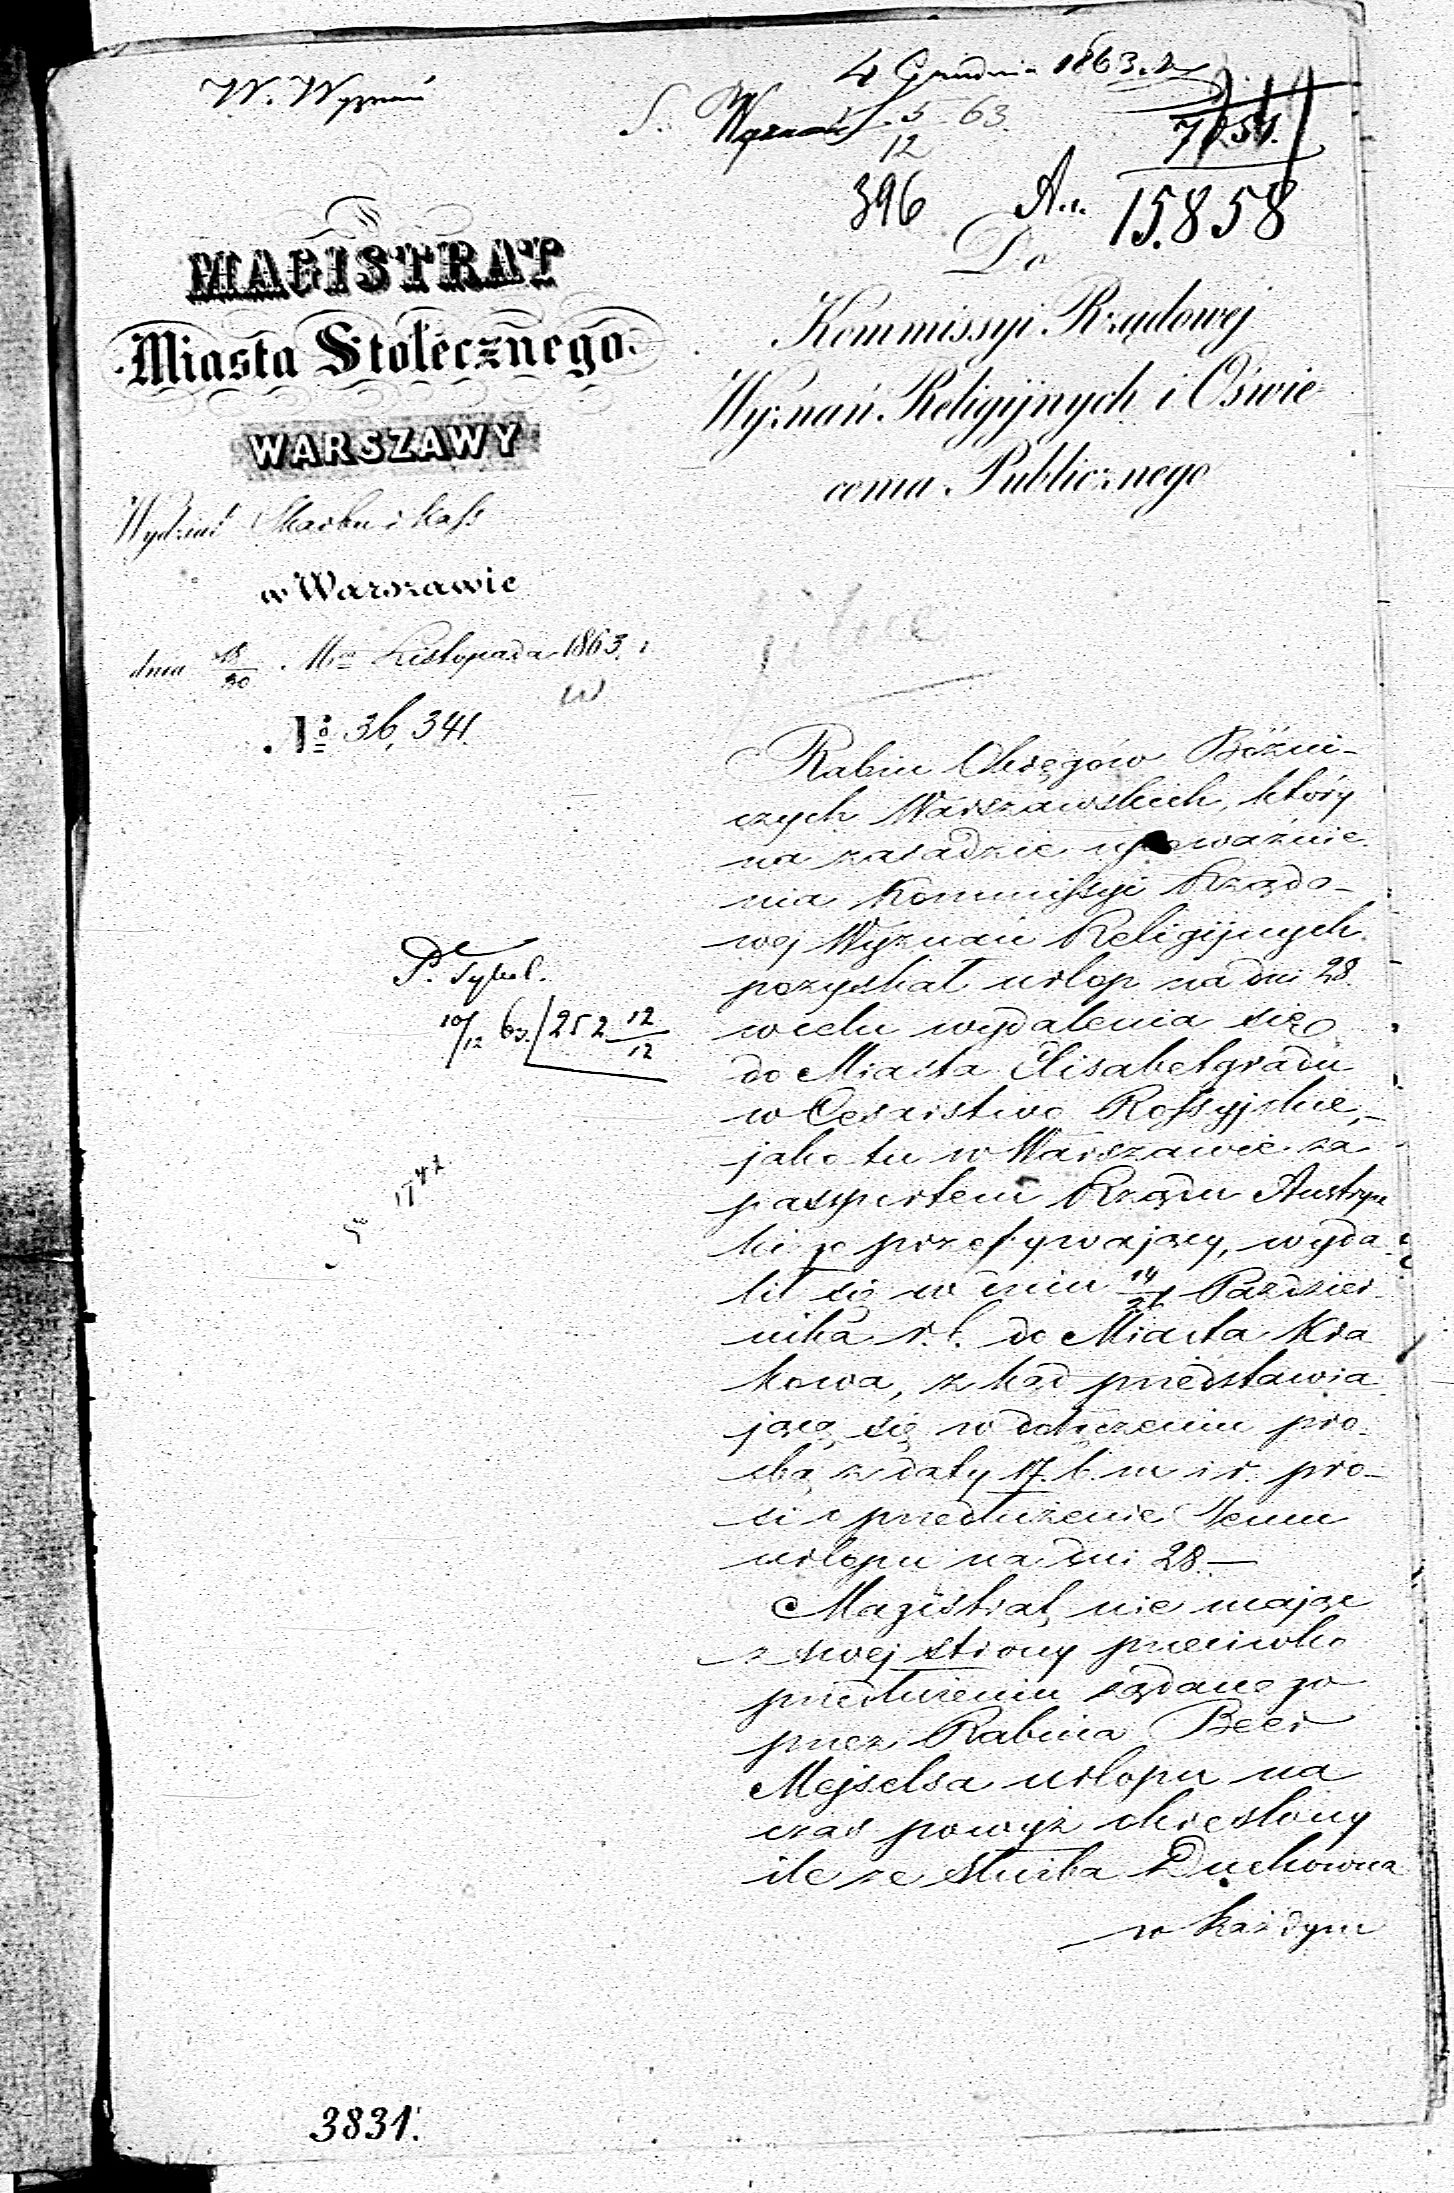 W. Wyznań
4 Grudnia 1863. r.
S. Wyznań 5/12 63.
7251.
396 A.. 15.858
MAGISTRAT
Miasta Stołecznego
WARSZAWY
Wydział Skarbu i Kass
w Warszawie
dnia 18/30 Mca Listopada 1863 r
No 36,341.
Do
Kommissyi Rządowej
Wyznań Religijnych i Oświe-
cenia Publicznego
P.
10/12 63. /252 12/12
1742
Rabin Okręgów Bóżni-
czych Warszawskich, który
na zasadzie upoważnie-
nia Kommissyi Rządo-
wej Wyznań Religijnych
pozyskał urlop na dni 28.
w celu wydalenia się
do Miasta Elisabetgradu
w Cesarstwo Rossyjskie,
jako tu w Warszawie za
passportem Rządu Austrya
kiego przebywający, wyda-
lił się w dniu Paździer-
nika r. b. do Miasta Kra
kowa, z kąd przedstawia
jącą się w dołączeniu pro-
śbą z daty 17. b. m i r. pro-
si o przedłużenie Jemu
urlopu na dni 28.—
Magistrat, nie mając
z swej strony przeciwko
przedłużeniu żądanego
przez Rabina Beer
Mejselsa urlopu na
czas powyż określony
ile że służba Duchowna
w każdym
3831.